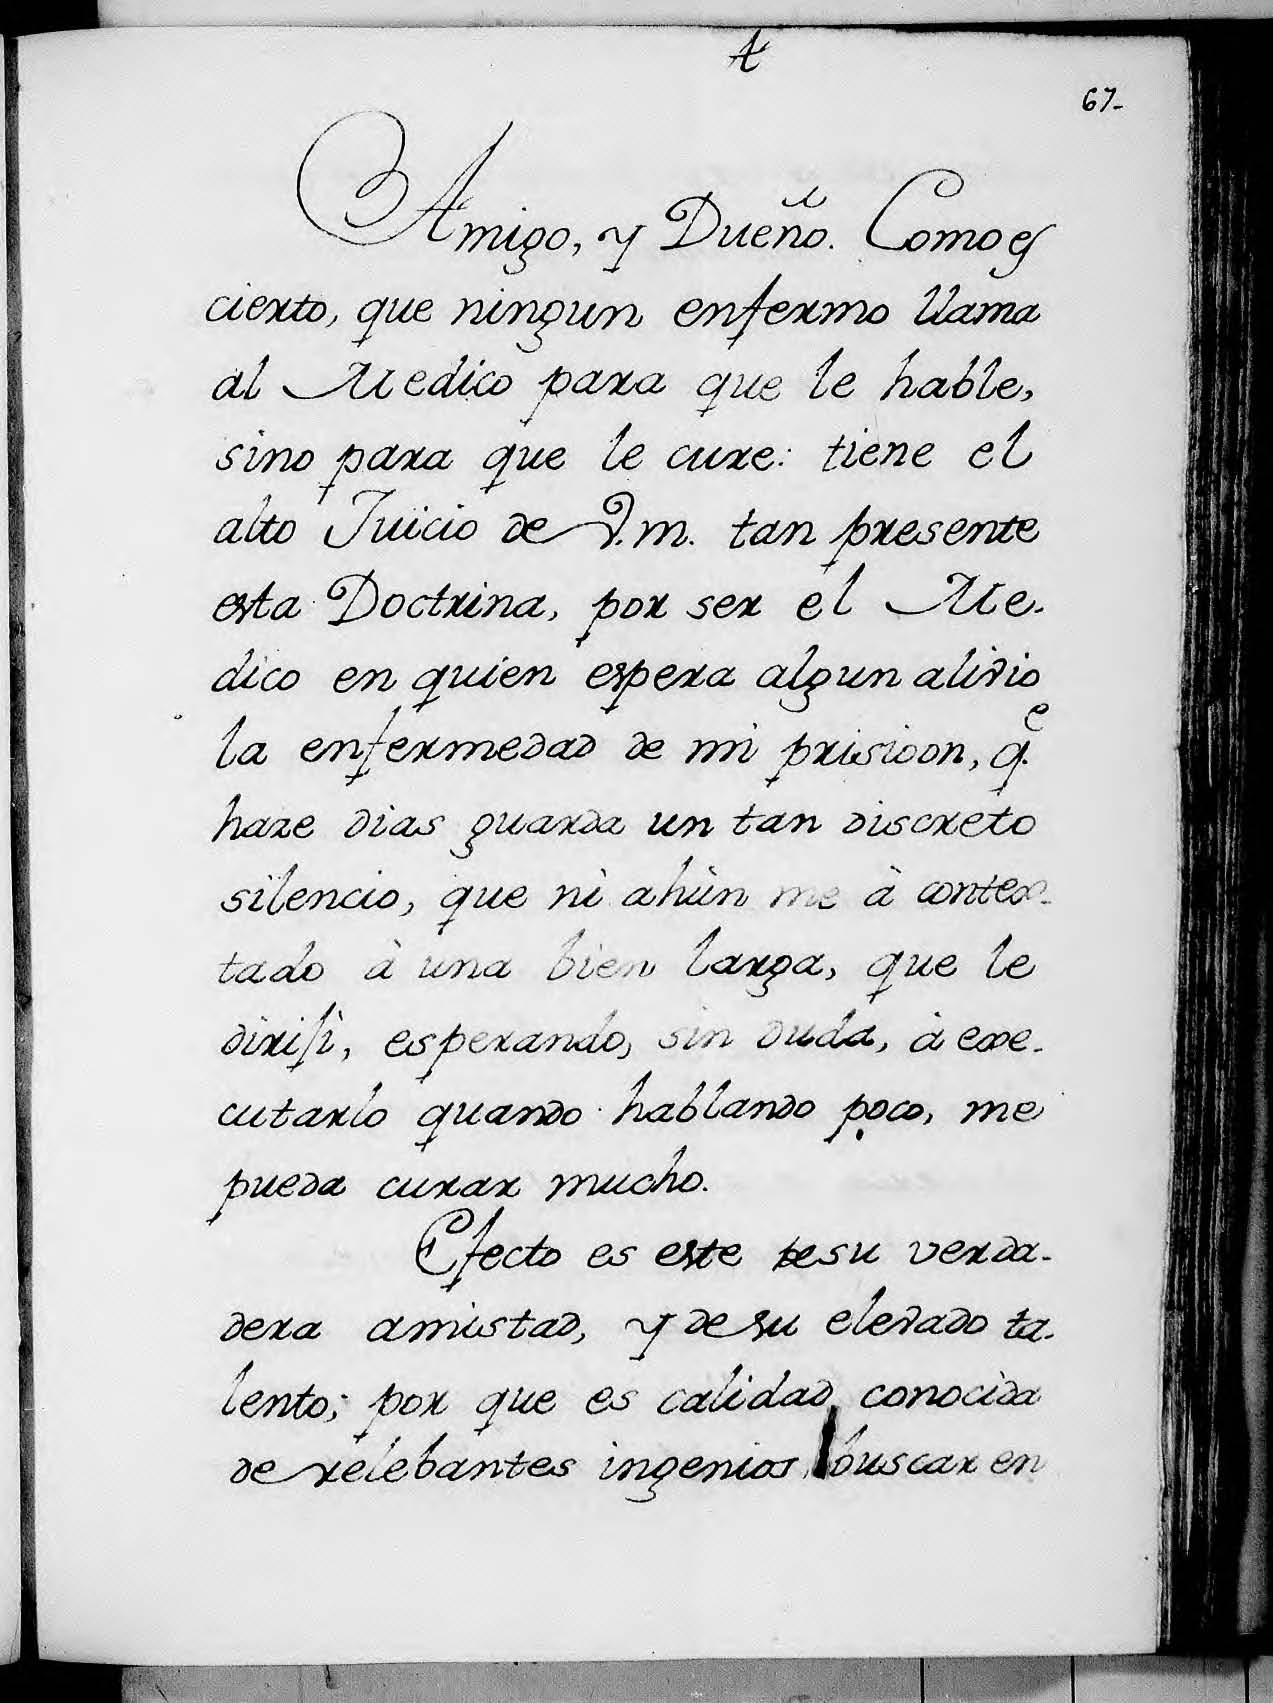 67-
Amigo, y Dueño. Como es
cierto, que ningun enfermo llama
al Medico para que le hable,
sino para que le cure: tiene el
alto Juicio de V.m. tan presente
esta Doctrina, por ser el Me-
dico en quien espera algun alivio
la enfermedad de mi prisioon, q.e
haze dias guarda un tan discreto
silencio, que ni ahùn me à contex-
tado à una bien larga, que le
dirijì, esperando, sin duda, à exe-
cutarlo quando hablando poco, me
pueda curar mucho.
Efecto es este de su verda-
dera amistad, y de su elevado ta-
lento; por que es calidad conocida
de relebantes ingenios, buscar en